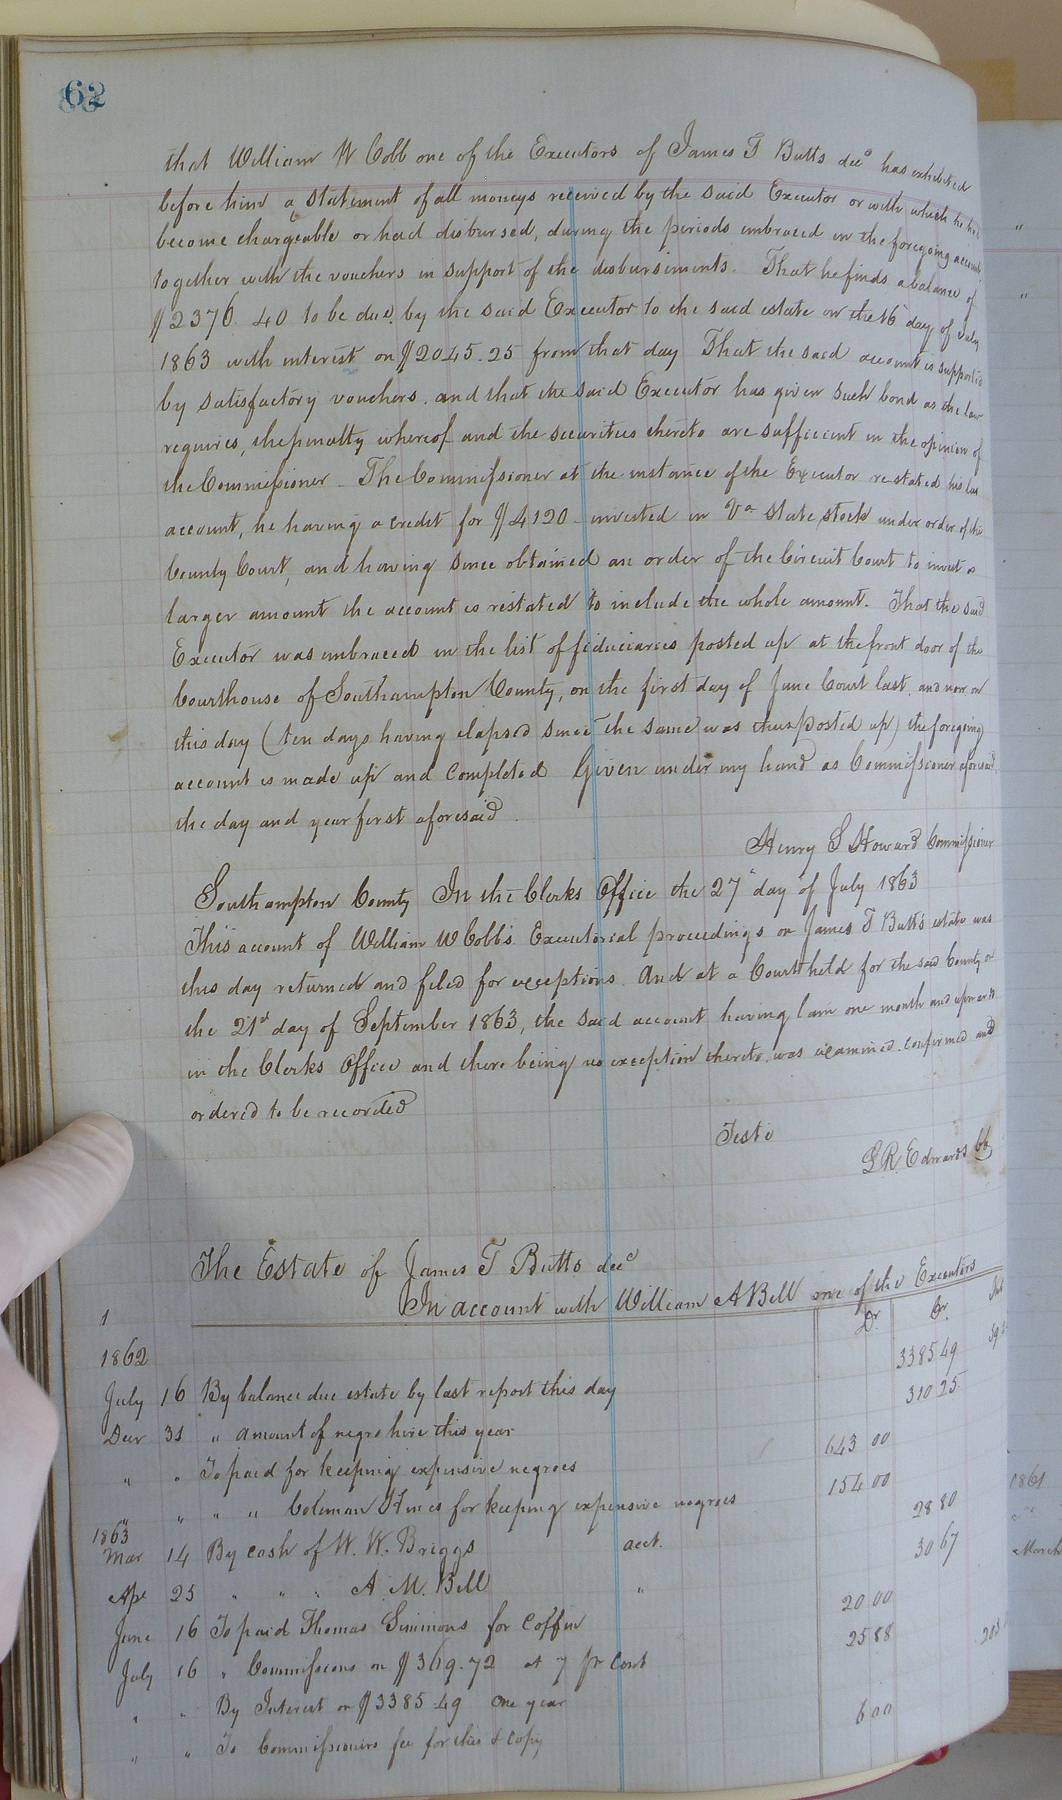 62
that William W Cobb one of the Executors of James T Butts decd has exhibited
before him a statement of all moneys received by the said Executor or with which he has
become chargeable or had disbursed, during the periods embraced in the foregoing account
together with the vouchers in support of the disbursements. That he finds a balance of
$2376.40 to be due by the said Executor to the said estate on the 16 day of July
1863 with interest on $2045.25 from that day That the said account is supported
by satisfactory vouchers. and that the said Executor has given such bond as the law
requires, the penalty whereof and the securities thereto are sufficient in the opinion of
the Commissioner – The Commissioner at the instance of the Executor re-stated his last
account, he having a credit for $4120 – invested in Va State stock under order of the
County Court, and having since obtained an order of the Circuit Court to invest a
larger amount the account is restated to include the whole amount. That the said
Executor was embraced in the list of fiduciaries posted up at the front door of the
Courthouse of Southampton County, on the first day of June Court last, and now on
this day (ten days having elapsed since the same was thus posted up) the foregoing
account is made up and completed Given under my hand as Commissioner aforesaid,
the day and year first aforesaid.
Henry S Howard Commissioner
Southampton County In the Clerks Office the 27" day of July 1863
This account of William W Cobb's Executorial proceedings on James T Butts estate was
this day returned and filed for exceptions. And at a Court held for the said County on
the 21st day of September 1863, the said account having lain one month and upwards
in the Clerks Office and there being no exception thereto was examined. confirmed and
ordered to be recorded
Teste
L R. Edwards CC
The Estate of James T Butts decd
In account with William A Bell one of the Executors
1 Dr. Cr.
1862
July 16 By balance due estate by last report this day 3385 49
Decr 31 " amount of negro hire this year 310 25
" " To paid for keeping expensive negroes 643 00
" " " " Coleman Hines for keeping expensive negroes 154 00
1863
Mar 14 By cash of W. W. Briggs acct. 28 80
Apl 25 " " " A. M. Bell " 30 67
June 16 To paid Thomas Simmons for Coffin 20 00
July 16 " Commissions on $369.72 at 7 pr Cent 25 88
" " By Interest on $3385 49 One year
" " To Commissioners fee for this & copy 6 00
1861
March